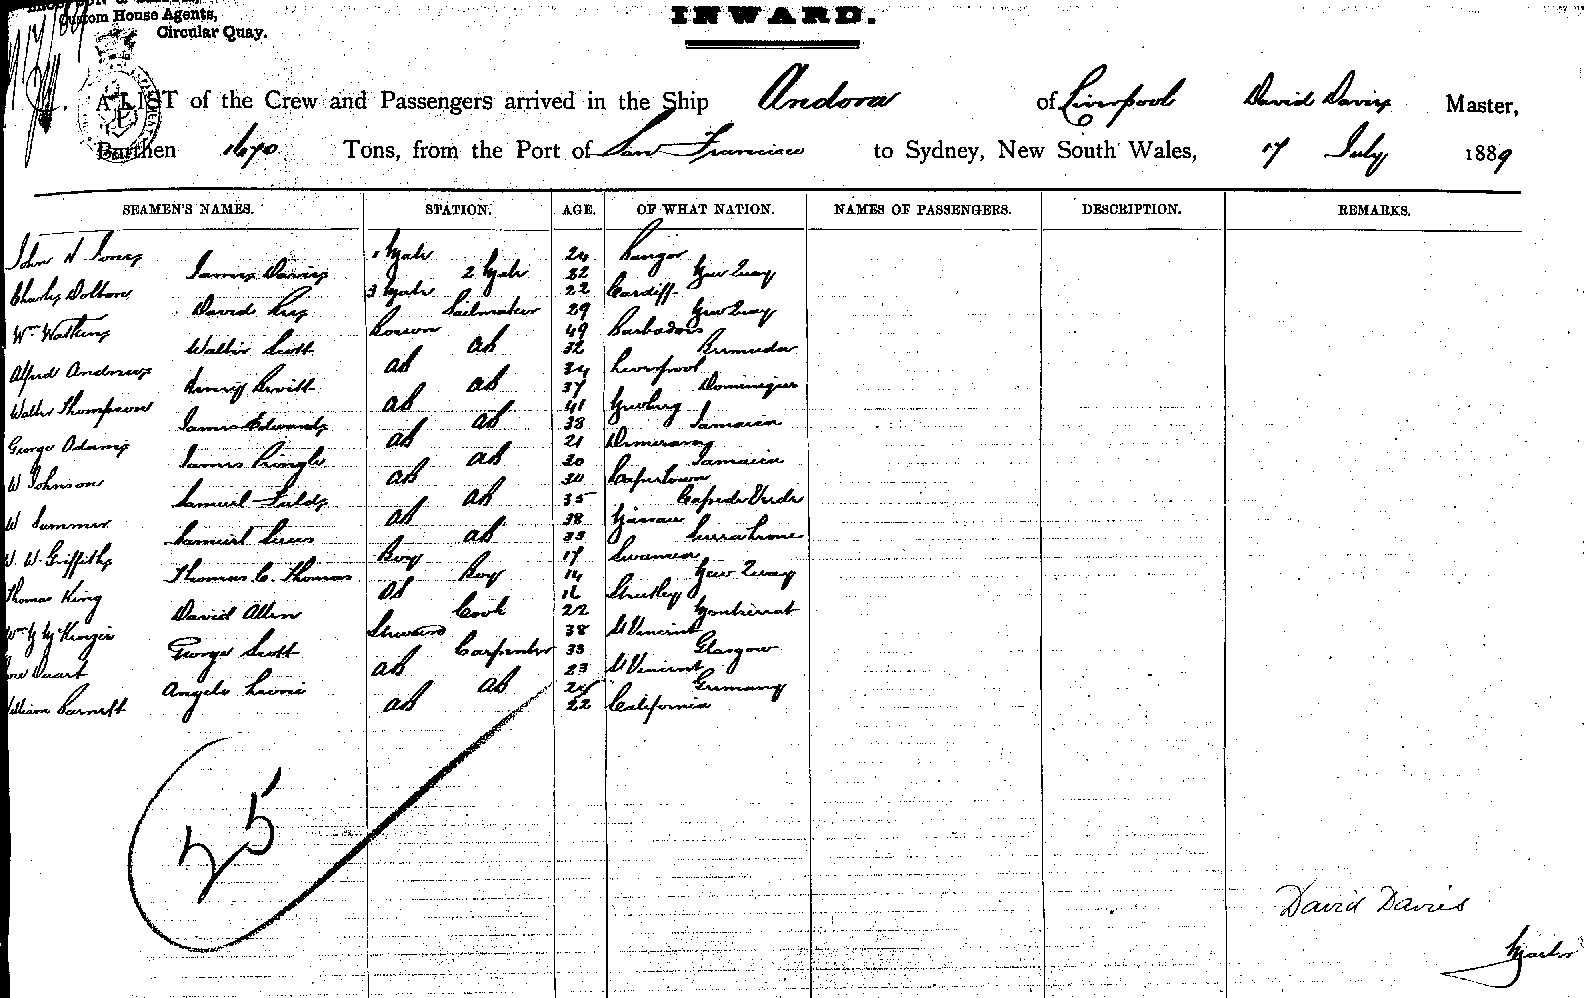 Custom House Agents,
Circular Quay.
INWARD.
A LIST of the Crew and Passengers arrived in the Ship Andora of Liverpool David Davies Master,
Burthen 1670 Tons, from the Port of San Francisco to Sydney, New South Wales, 17 July 1889
SEAMEN'S NAMES. STATION. AGE. OF WHAT NATION. NAMES OF PASSENGERS. DESCRIPTION. REMARKS.
John H Jones 1 Mate 24 Bangor
James Davies 2 Mate 32 New Quay
Charles Dolban 3 Mate 22 Cardiff
David Rees Sailmaker 29 New Quay
Wm Watkins Bosun 49 Barbados
Walter Scott AB 32 Bermuda
Alfred Andrews AB 34 Liverpool
Henry AB 37
Walter Thompson AB 41 Newburg
James Edwards AB 38 Jamaica
George Adams AB 21 Demerara
James Pringle AB 30 Jamaica
W Johnson AB 30 Capetown
Samuel Fields AB 35 Cape de Verde
W Summer AB 38 Nassau
Samuel AB 33 Sierra Leone
W. W. Griffiths Boy 17 Swansea
Thomas C. Thomas Boy 14 New Quay
Thomas King OS 16
David Allen Cook 22 Montserrat
Wm M McKenzie Steward 38 St Vincent
George Scott Carpenter 33 Glasgow
AB 23 St Vincent
Angelo AB 24 Germany
William Barnett AB 22 California
25
David Davies
Master